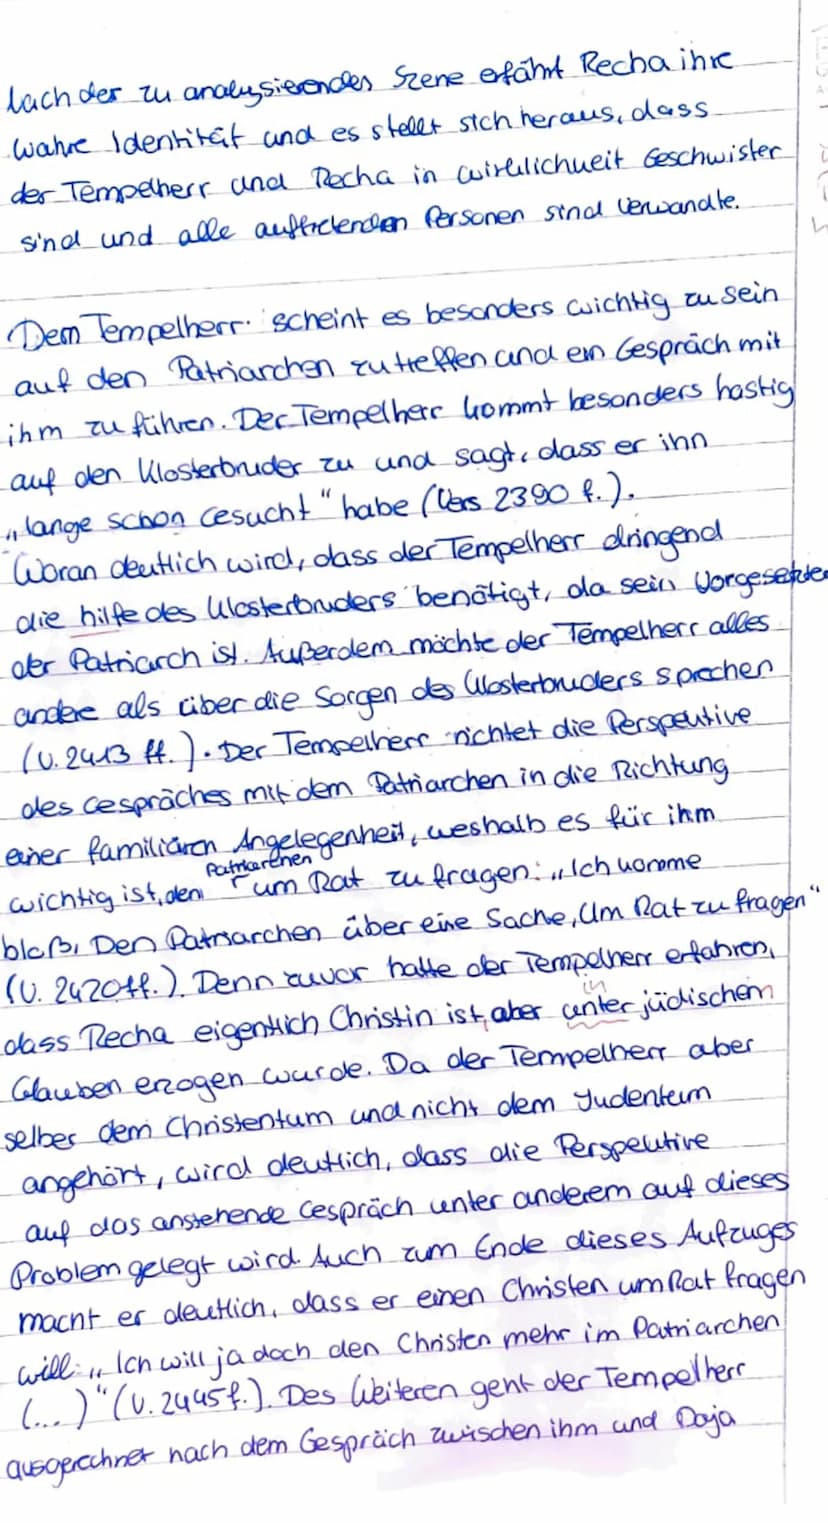 Nach der zu analysierenden Szene erfährt Recha ihre
wahre Identität und es stellt sich heraus, dass
der Tempelherr und Recha in wirklichkeit Geschwister
sind und alle auftretenden Personen sind Verwandte.
Dem Tempelherr scheint es besonders wichtig zu sein
auf den Patriarchen zu treffen und ein Gespräch mit
ihm zu führen. Der Tempelherr kommt besonders hastig
auf den Klosterbruder zu und sagt, dass er ihn
„lange schon Gesucht“ habe (Vers 2390 f.).
Woran deutlich wird, dass der Tempelherr dringend
die hilfe des Klosterbruders benötigt, da sein Vorgesetzter
der Patriarch ist. Außerdem möchte der Tempelherr alles
andere als über die Sorgen des Klosterbruders sprechen
(V. 2413 ff.). Der Tempelherr richtet die Perspektive
des Gespräches mit dem Patriarchen in die Richtung
einer familiären Angelegenheit, weshalb es für ihm
Patriarchen
wichtig ist, den um Rat zu fragen: „Ich komme
bloß, Den Patriarchen über eine Sache, Um Rat zu fragen“
(V. 2420 ff.). Denn zuvor hatte der Tempelherr erfahren,
in
dass Recha eigentlich Christin ist, aber unter jüdischem
Glauben erzogen wurde. Da der Tempelherr aber
selber dem Christentum und nicht dem Judentum
angehört, wird deutlich, dass die Perspektive
auf das anstehende Gespräch unter anderem auf dieses
Problem gelegt wird. Auch zum Ende dieses Aufzuges
macht er deutlich, dass er einen Christen um Rat fragen
will: „Ich will ja doch den Christen mehr im Patriarchen
(...)“ (V. 2445 f.). Des Weiteren geht der Tempelherr
ausgerechnet nach dem Gespräch zwischen ihm und Daja